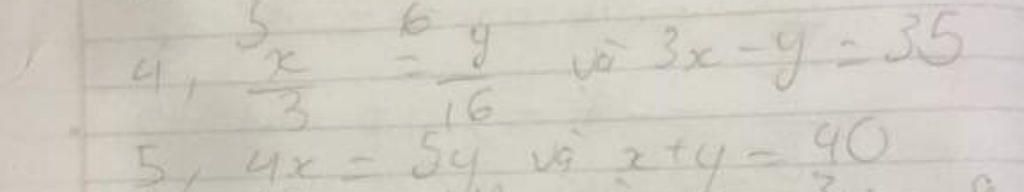 5 6
4, x/3 = y/16 và 3x - y = 35
5, 4x = 5y và x + y = 90